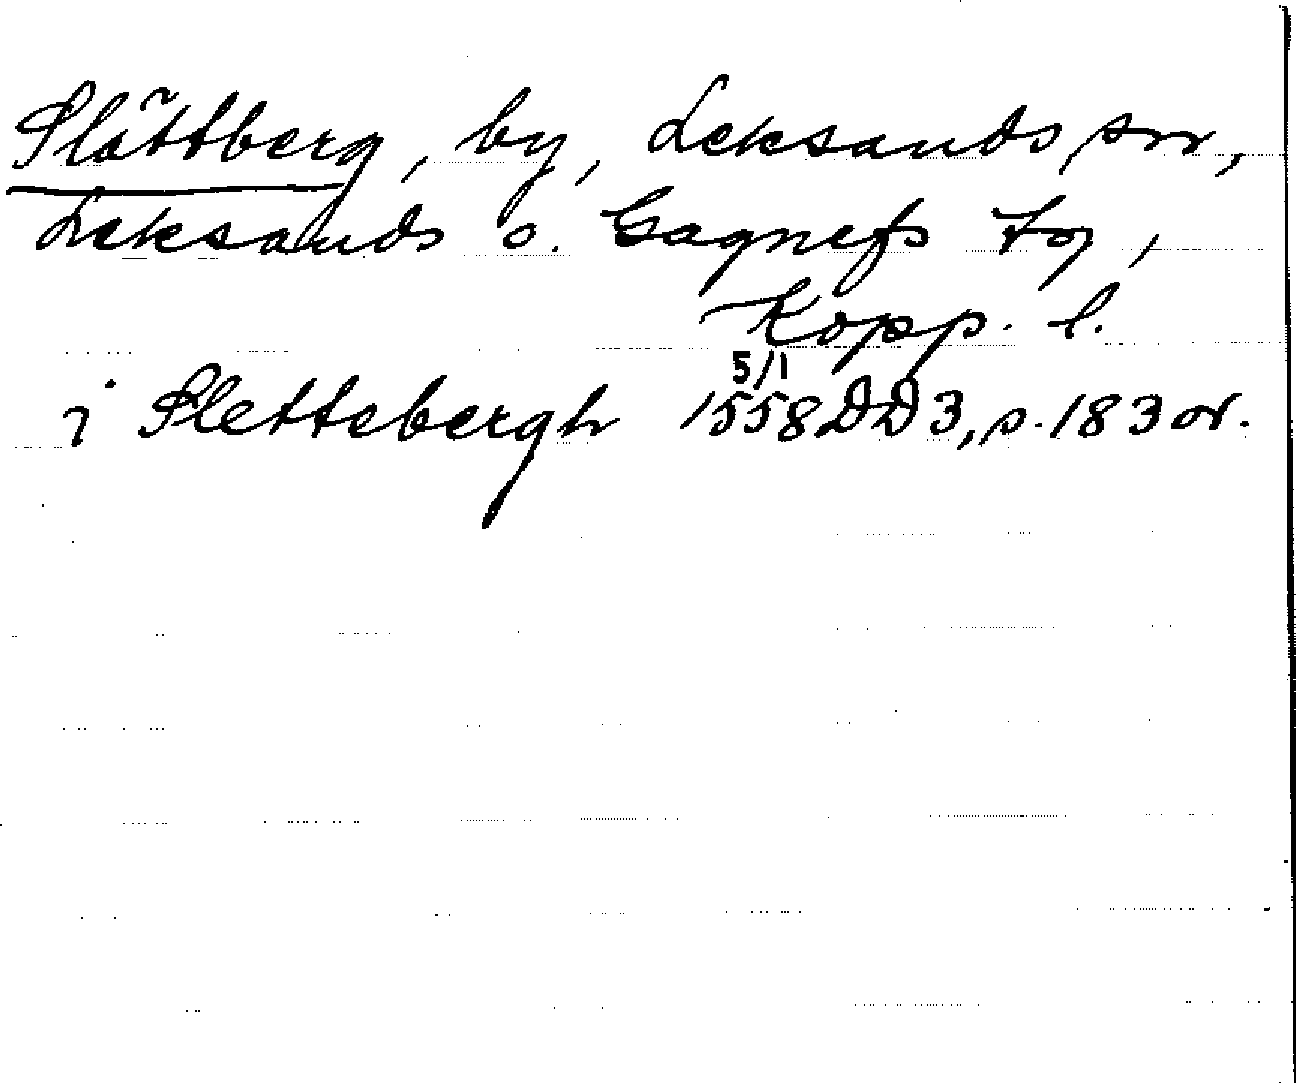 Slättberg, by, Leksands sn,
Leksands o. Gagnefs tg,
Kopp. l.
5/1
i Slettebergh 1558 DD 3, s. 183 or.